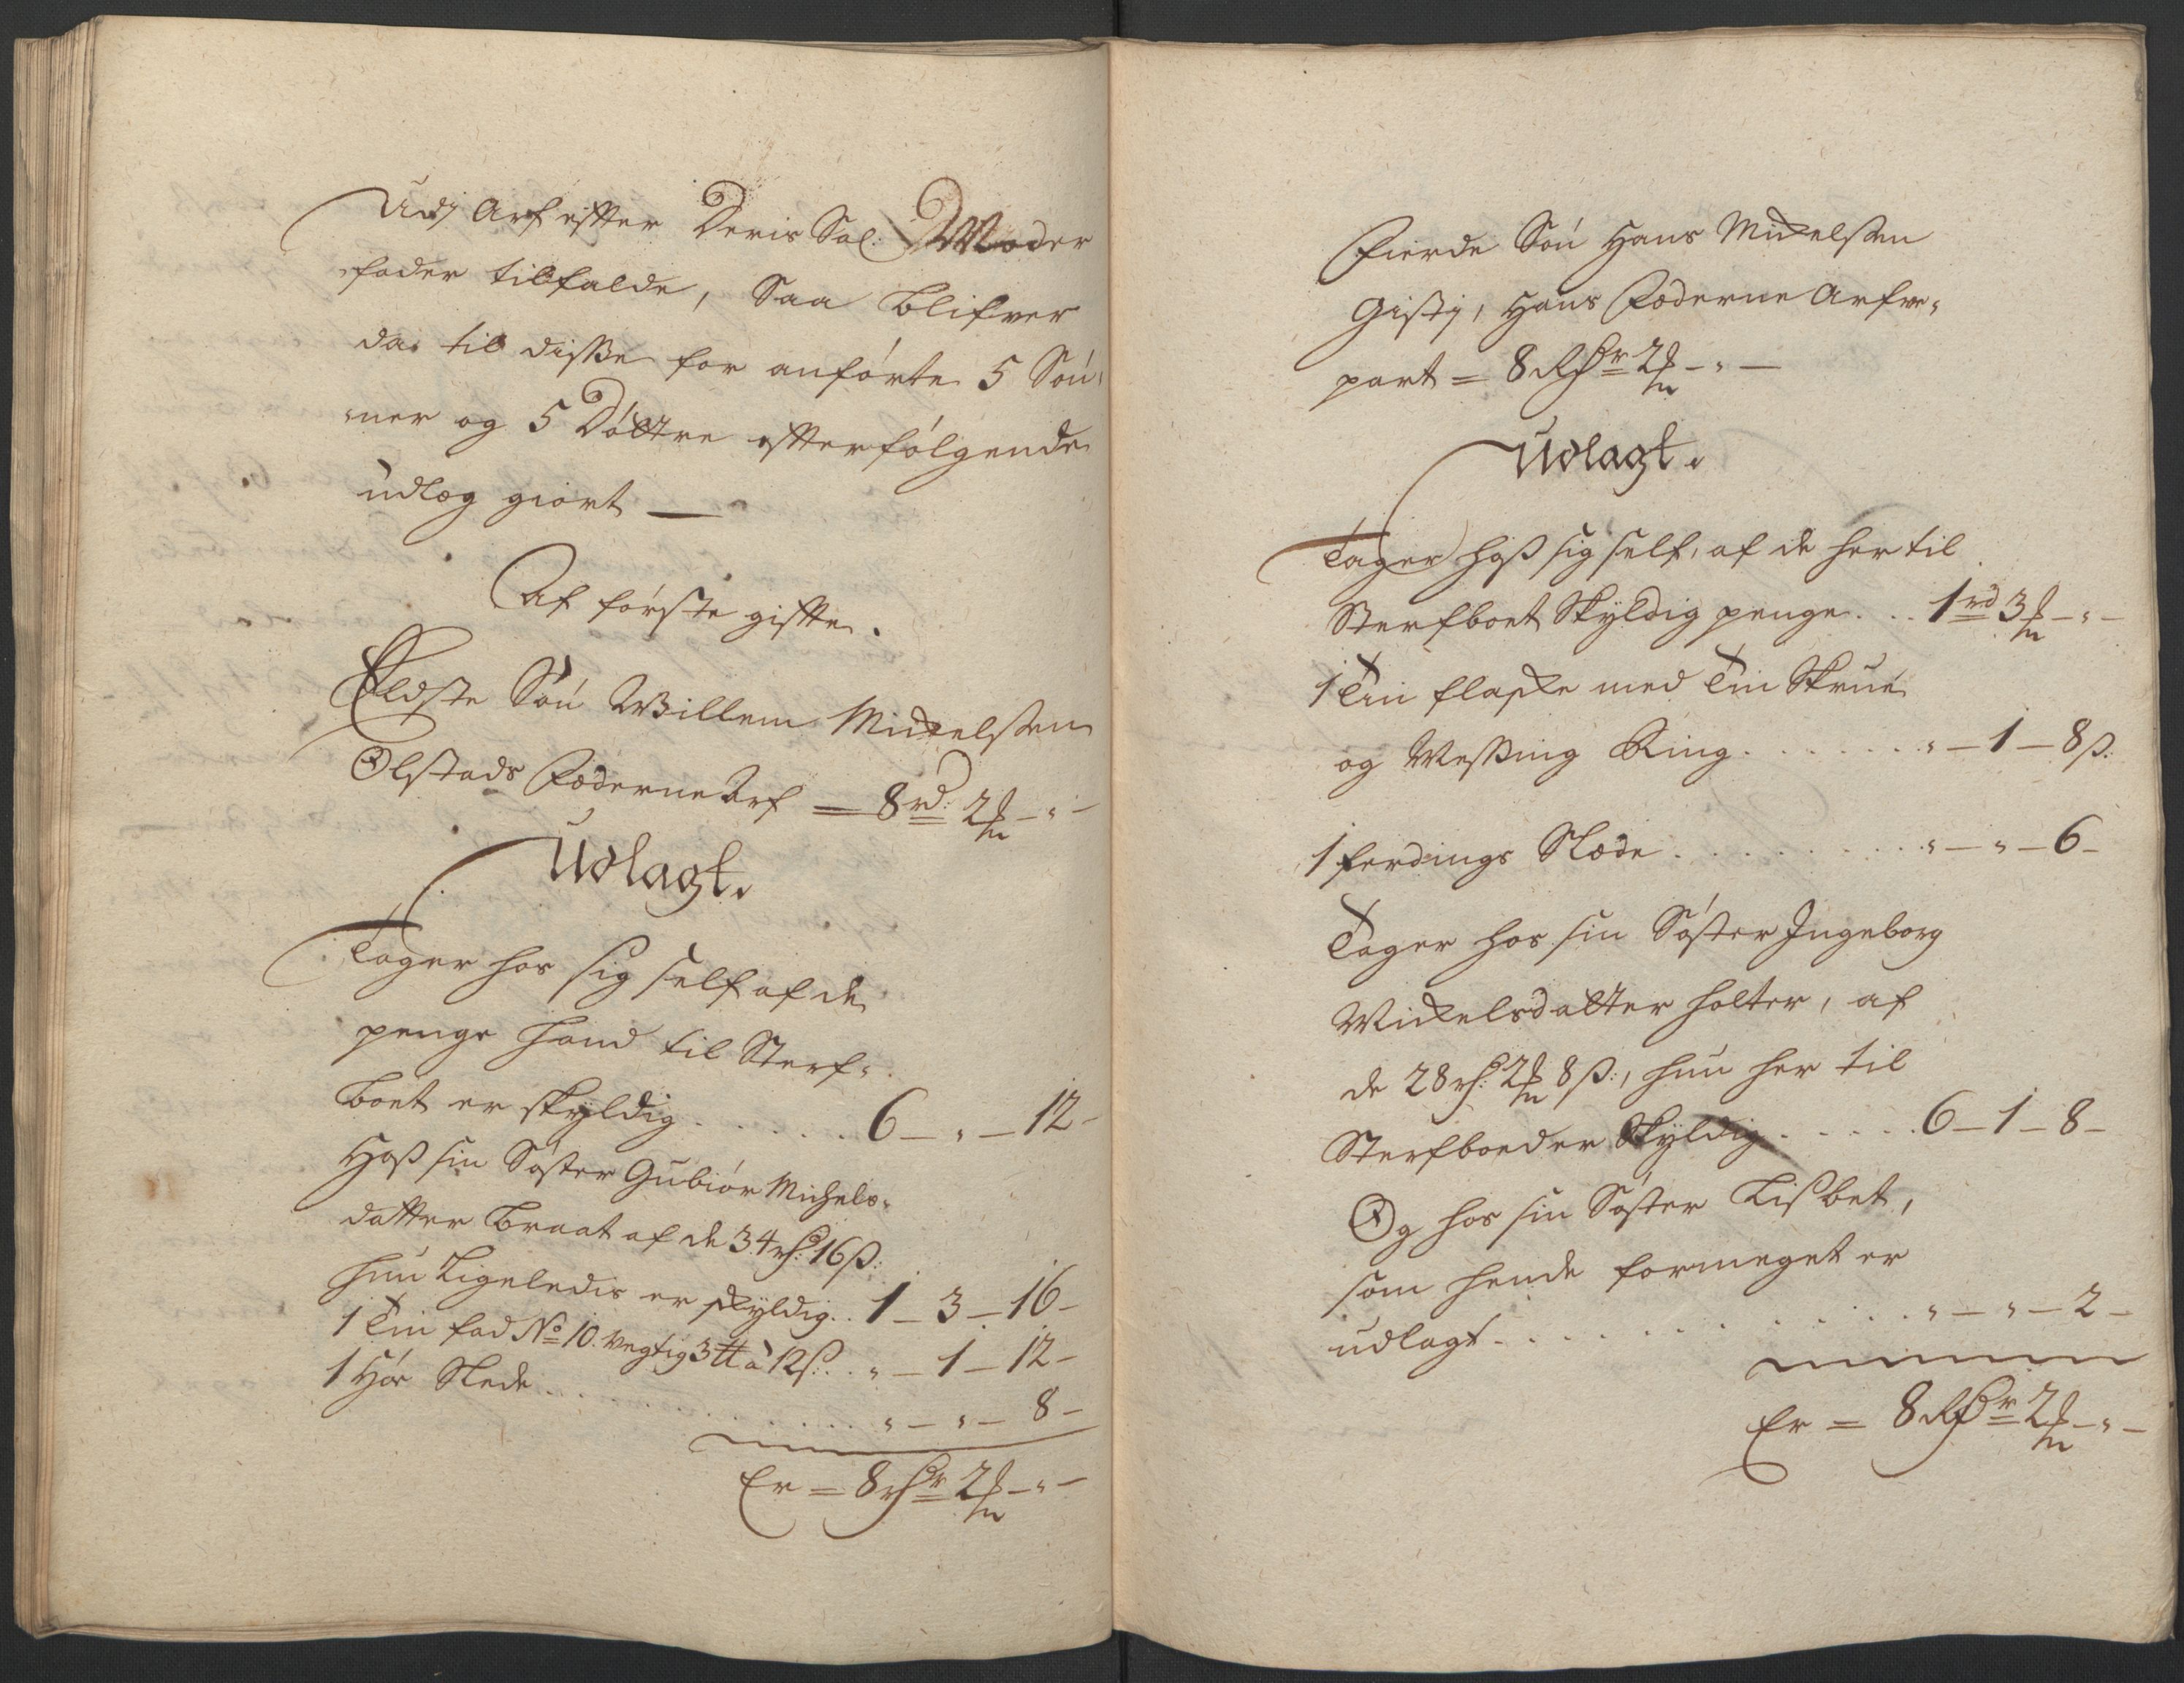 Udj Arf efter Deris Sal: Moder
fader tilfalde, Saa blifver
da til disse for anførte 5 Søn¬
ner og 5 Døttre efterfølgende
udlæg giort —
Af første gifte.
Eldste Søn Willem Mickelssen
Olstads Fæderne Arf = 8 rd: 2 ₰ - " -
Udlagt.
Tager hos sig self af de
penge hand til Sterf¬
boet er skyldig . . . . . 6 - " - 12 -
Hoss sin Søster Gubiør Michels¬
datter Braat af de 34 rh: 16 ß:
hun Ligeledis er skyldig . . 1 - 3 - 16 -
1 Tin fad No 10. vegtig 3 ℔ à 12 ß: . . " - 1 - 12 -
1 Hør Slede . . . . . " - " - 8 -
Er = 8 rhr 2 ₰ - " -
Fierde Søn Hans Mickelssen
Hans Fæderne Arfve¬
part = 8 Rhr 2 ₰ - " -
Udlagt.
Tager hoss sig self, af de her til
Sterfboet Skyldig penge . . 1 rd 3 ₰ - " -
1 Tin flaske med Tin Skrue
og Messing Ring . . . . . " - 1 - 8 ß:
1 ferdings Slæde . . . . . " - " - 6 -
Tager hos sin Søster Ingeborg
Mickelsdatter holter, af
de 28 rh: 2 ₰ 8 ß:, hun her til
Sterfboed er Skyldig . . . . . 6 - 1 - 8 -
Og hos sin Søster Lisbet,
som hende formeget er
udlagt . . . . . " - " - 2 -
Er = 8 Rhr 2 ₰ - " -